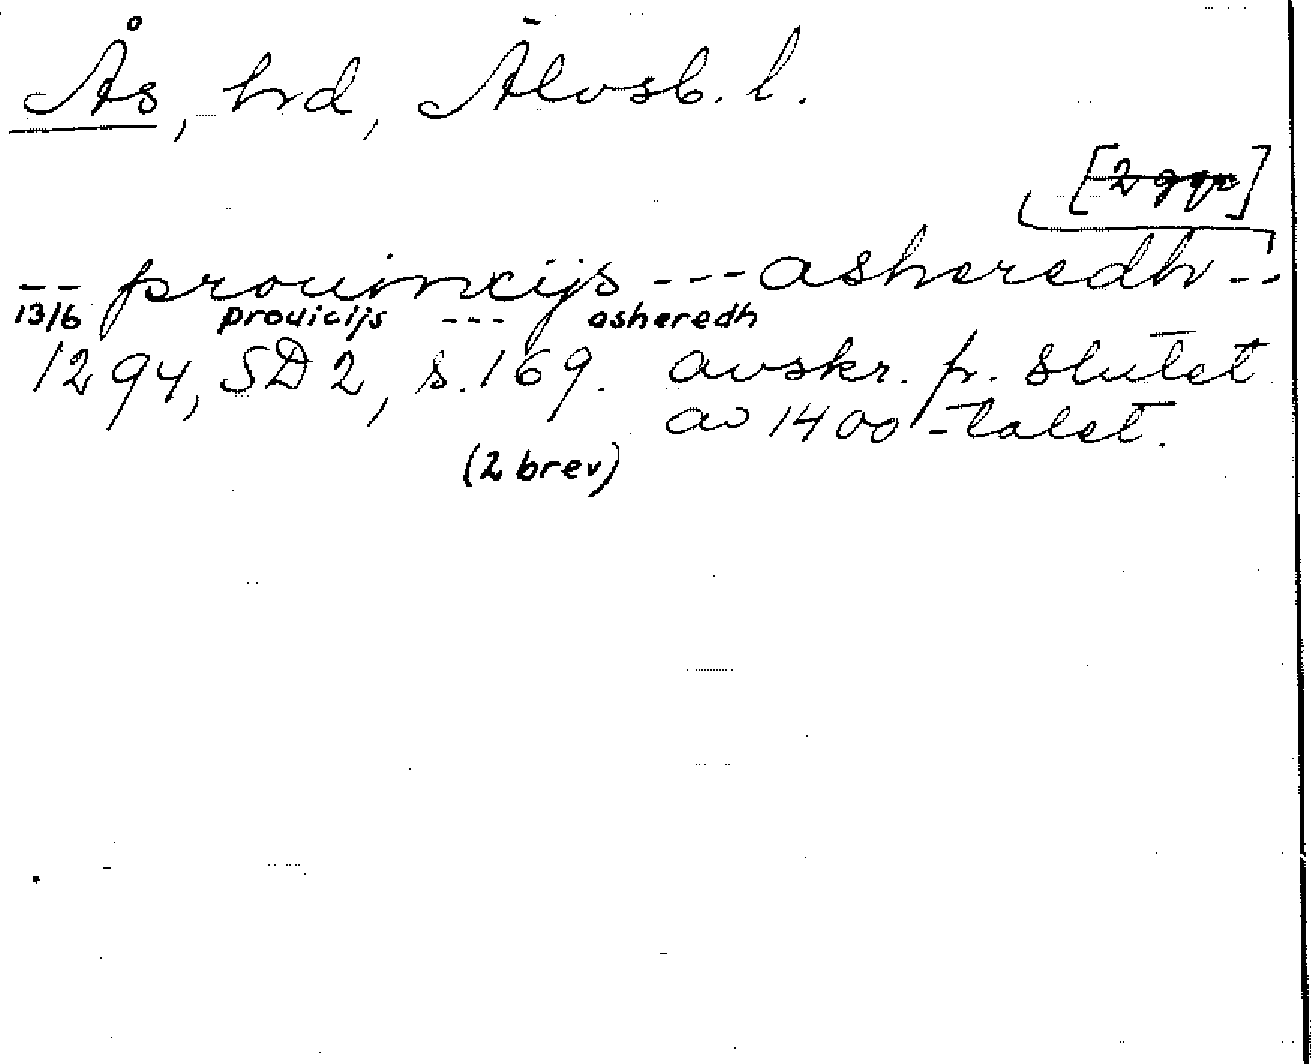 Ås, hd, Älvsb. l.
[2 ggr]
-- prouincijs --- asheredh --
13/6 prouicijs --- asheredh
1294, SD 2, s. 169. avskr. fr. slutet
av 1400-talet.
(2 brev)